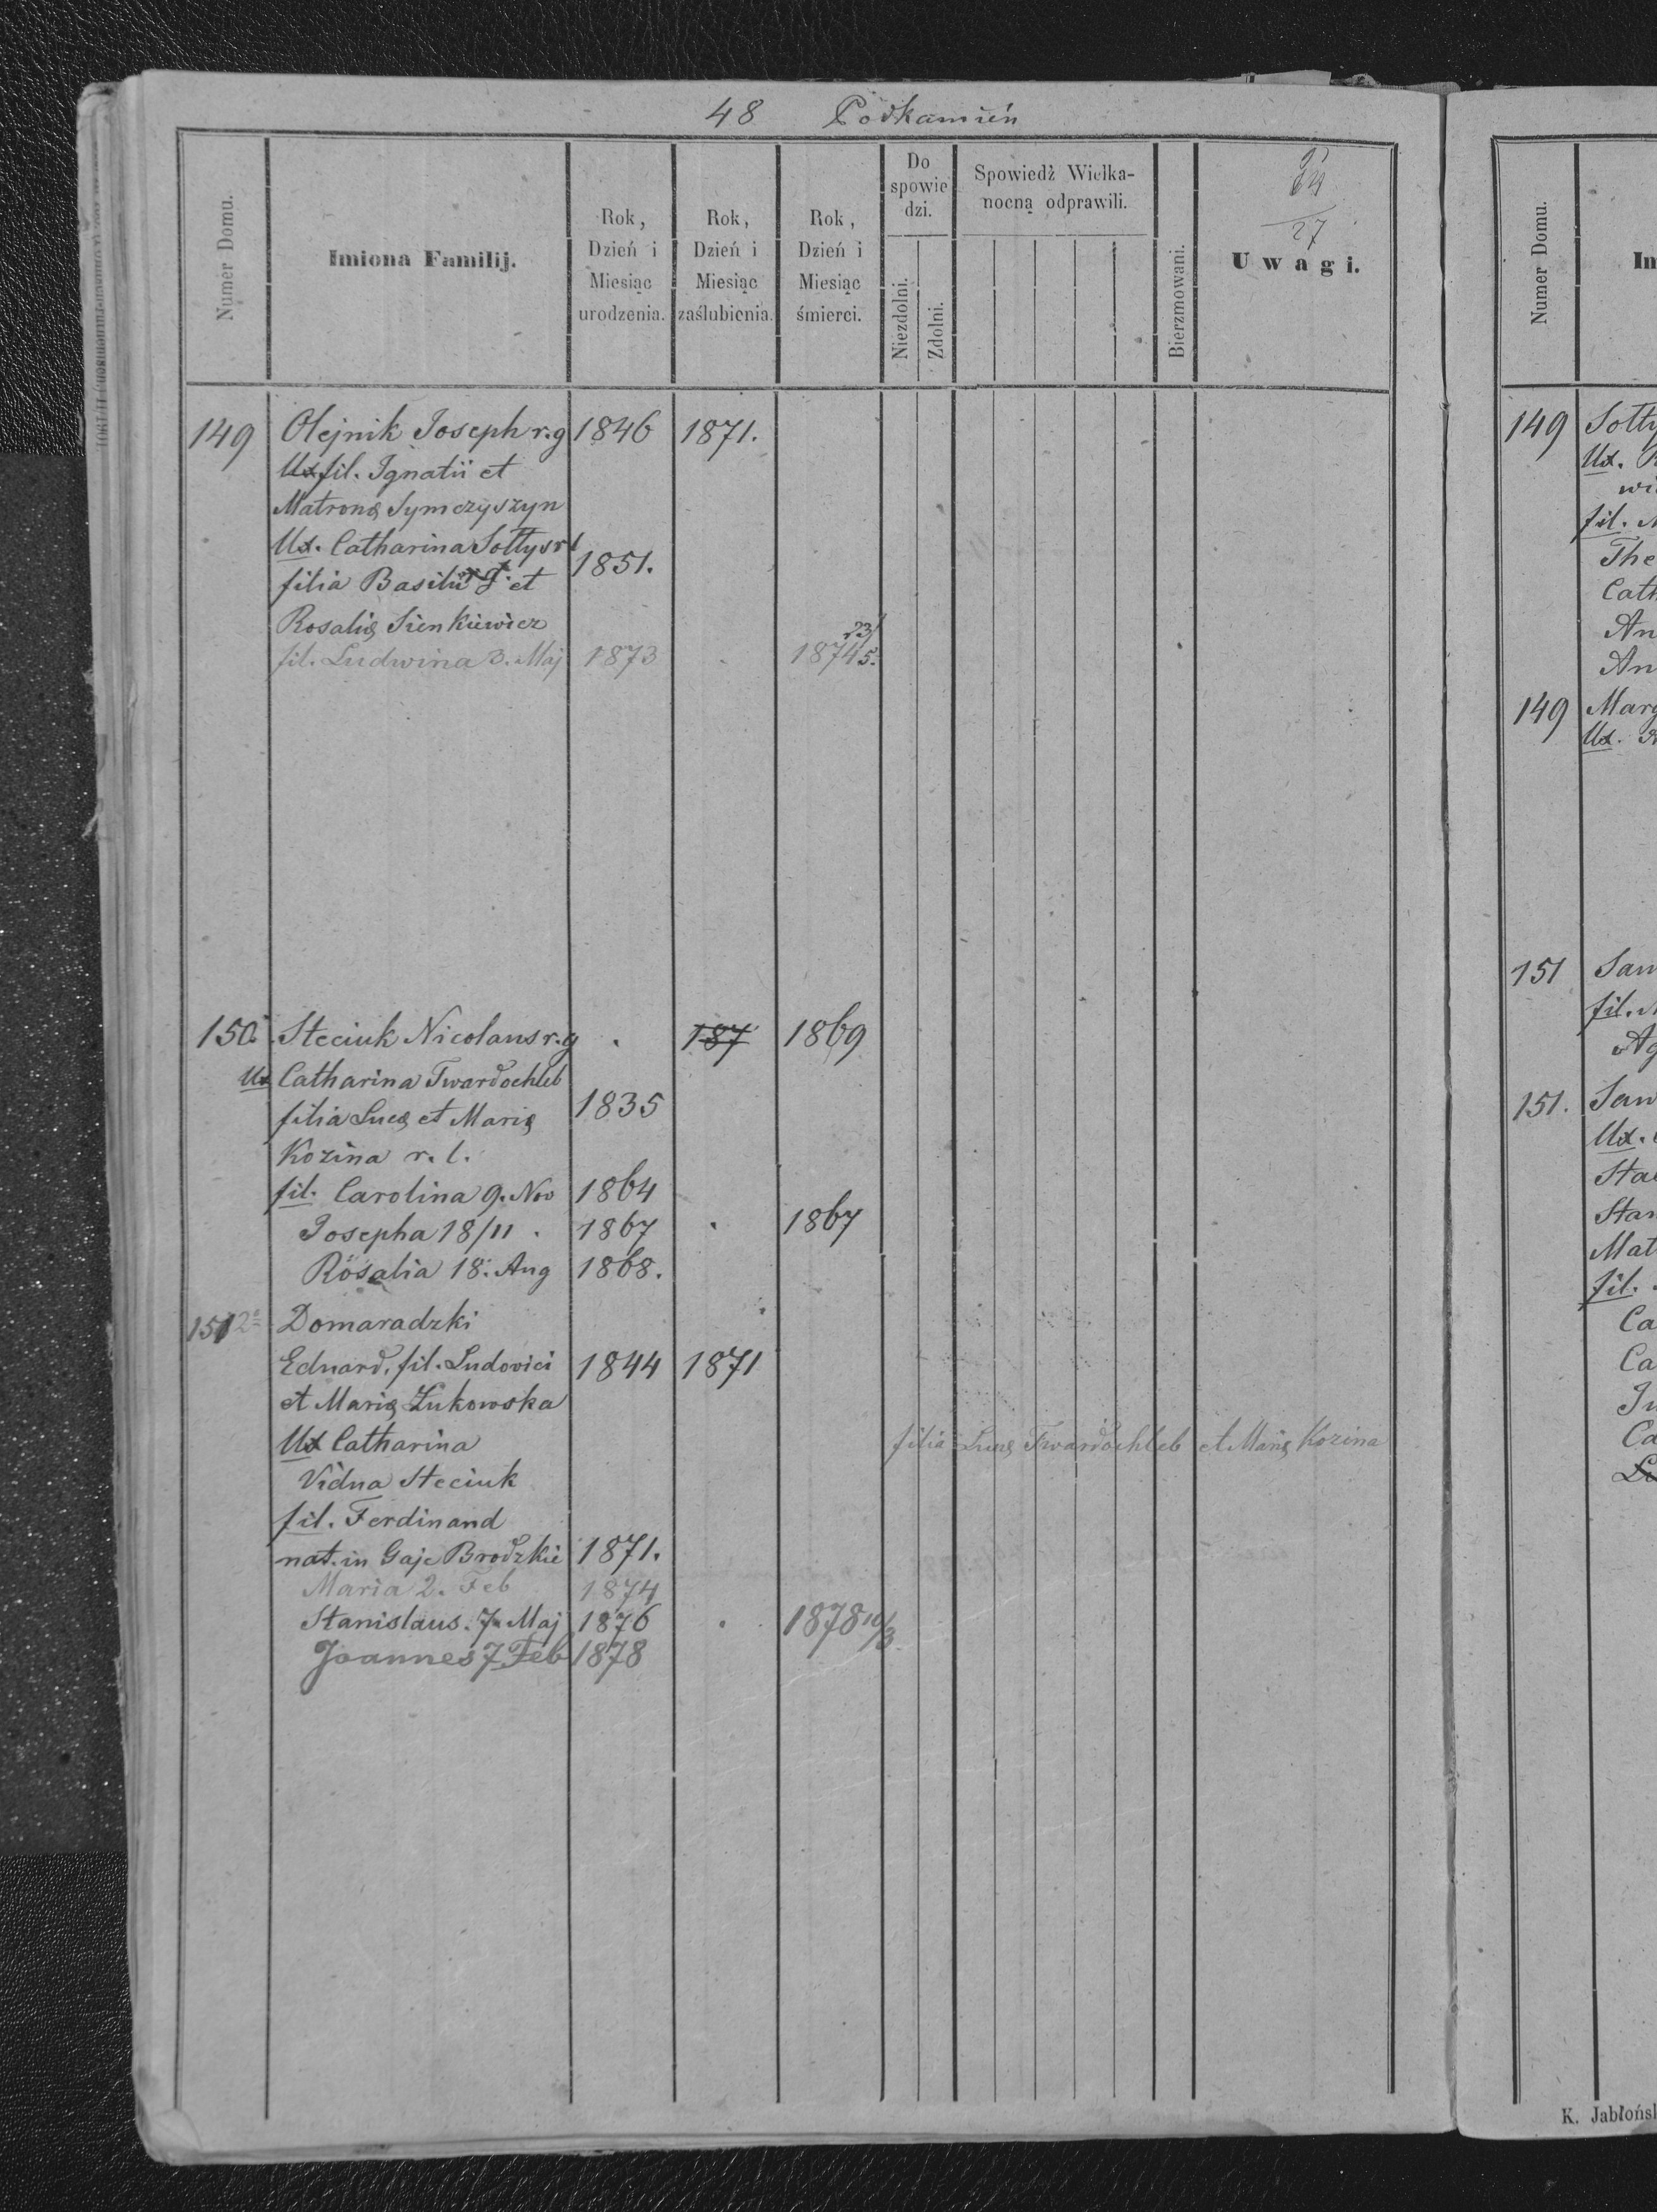 48 Podkamień
Numer Domu.
Imiona Familij.
Rok, Dzień i Miesiąc urodzenia.
Rok, Dzień i Miesiąc zaślubienia.
Rok, Dzień i Miesiąc śmierci.
Do spowiedzi.
Niezdolni.
Zdolni.
Spowiedź Wielkanocną odprawili.
Bierzmowani.
27
Uwagi.
149 Olejnik Joseph r.g 1846 1871.
Ux fil. Ignatii et
Matronę Symczyszyn
Ux. Catharina Sołtys r l
filia Basilii r g. et 1851.
Rosalię Sienkiewicz
fil. Ludwina 3. Maj 1873 . 1874 23/5.
150. Steciuk Nicolaus r.g . 187 1869
Ux Catharina Twardochleb
filia Lucę et Marię 1835
Kozina r. l.
fil. Carolina 9. Nov 1864
Josepha 18/11 . 1867 . 1867
Rosalia 18. Aug 1868.
151 Domaradzki
Eduard. fil. Ludovici 1844 1871
et Marię Żukowska
Ux Catharina filia Lucę Twardochleb et Marię Kozina
Vidua Steciuk
fil. Ferdinand
nat. in Gaje Brodzkie 1871.
Maria 2. Feb 1874
Stanislaus. 7. Maj 1876 . 1878 10/3
Joannes 7 Feb 1878
Numer Domu.
Im
149 Sołty
Ux.
fil.
The
Cath
An
An
149 Marg
Ux.
151 Saw
fil.
Ag
151.
Ux.
Sta
Stan
Mat
fil.
Ca
Ca
Ju
Ca
K. Jabłońsk